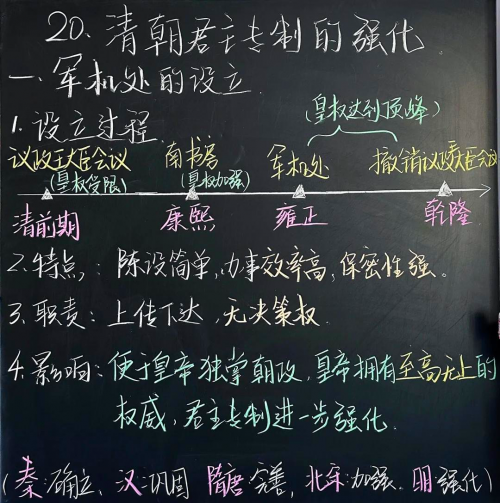 20.清朝君主专制的强化
一.军机处的设立.
1.设立过程
(皇权达到顶峰)
议政王大臣会议 南书房 军机处 撤销议政王大臣会议
(皇权受限) (皇权加强)
清前期 康熙 雍正 乾隆
2.特点:陈设简单,办事效率高,保密性强。
3.职责:上传下达,无决策权.
4.影响:便于皇帝独掌朝政,皇帝拥有至高无上的
权威,君主专制进一步强化.
(秦:确立、汉:巩固 隋唐:完善,北宋:加强、明:强化)